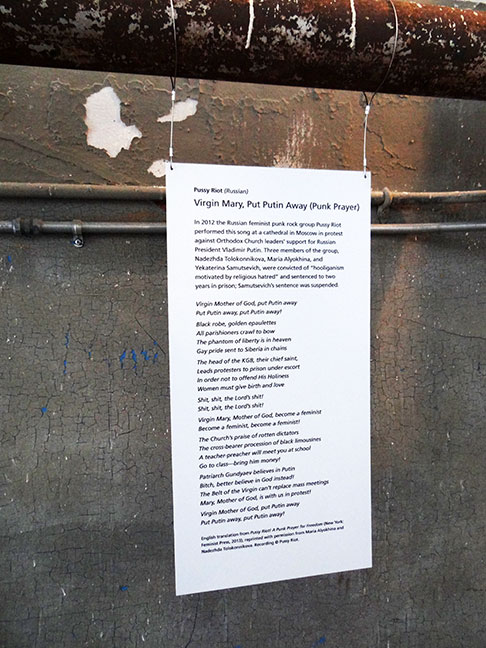 Pussy Riot (Russian)
Virgin Mary, Put Putin Away (Punk Prayer)
In 2012 the Russian feminist punk rock group Pussy Riot
performed this song at a cathedral in Moscow in protest
against Orthodox Church leaders' support for Russian
President Vladimir Putin. Three members of the group,
Nadezhda Tolokonnikova, Maria Alyokhina, and
Yekaterina Samutsevich, were convicted of "hooliganism
motivated by religious hatred" and sentenced to two
years in prison; Samutsevich's sentence was suspended.
Virgin Mother of God, put Putin away
Put Putin away, put Putin away!
Black robe, golden epaulettes
All parishioners crawl to bow
The phantom of liberty is in heaven
Gay pride sent to Siberia in chains
The head of the KGB, their chief saint,
Leads protesters to prison under escort
In order not to offend His Holiness
Women must give birth and love
Shit, shit, the Lord's shit!
Shit, shit, the Lord's shit!
Virgin Mary, Mother of God, become a feminist
Become a feminist, become a feminist!
The Church's praise of rotten dictators
The cross-bearer procession of black limousines
A teacher-preacher will meet you at school
Go to class—bring him money!
Patriarch Gundyaev believes in Putin
Bitch, better believe in God instead!
The Belt of the Virgin can't replace mass meetings
Mary, Mother of God, is with us in protest!
Virgin Mother of God, put Putin away
Put Putin away, put Putin away!
English translation from Pussy Riot! A Punk Prayer for Freedom (New York:
Feminist Press, 2013), reprinted with permission from Maria Alyokhina and
Nadezhda Tolokonnikova. Recording © Pussy Riot.